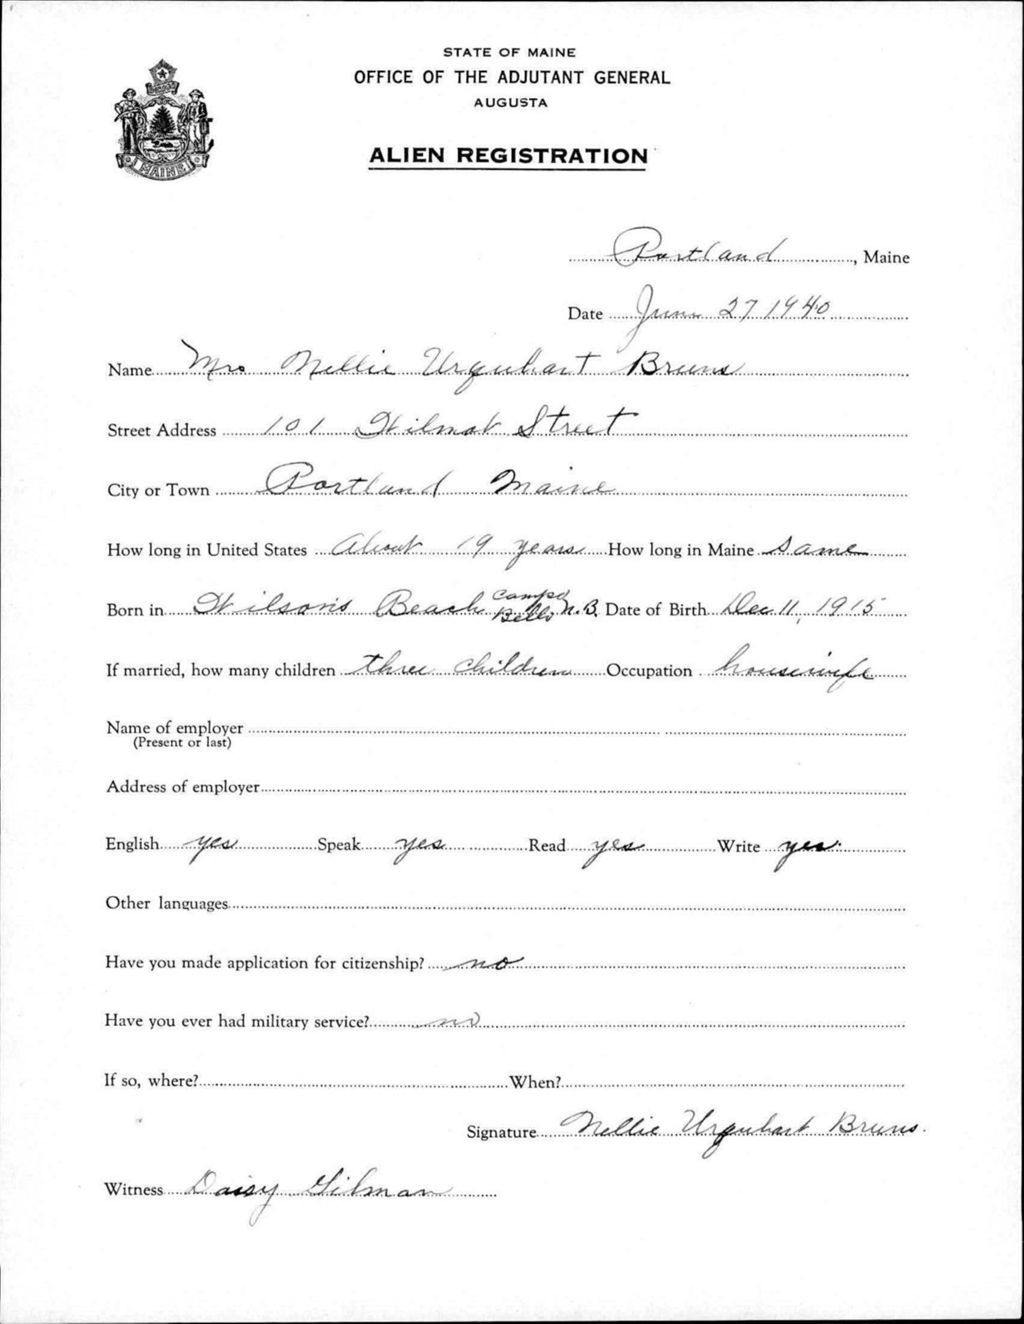 STATE OF MAINE
OFFICE OF THE ADJUTANT GENERAL
AUGUSTA
ALIEN REGISTRATION
MAINE
Portland, Maine
Date June 27 1940
Name Mrs Nellie Urquhart Bruns
Street Address 101 Wilmot Street
City or Town Portland Maine
How long in United States About 19 years How long in Maine Same
Born in Wilsons Beach Campo Bello N.B. Date of Birth Dec 11, 1915
If married, how many children three children Occupation housewife
Name of employer
(Present or last)
Address of employer
English yes Speak yes Read yes Write yes
Other languages
Have you made application for citizenship? no
Have you ever had military service? no
If so, where? When?
Signature Nellie Urquhart Bruns.
Witness Daisy Gilman